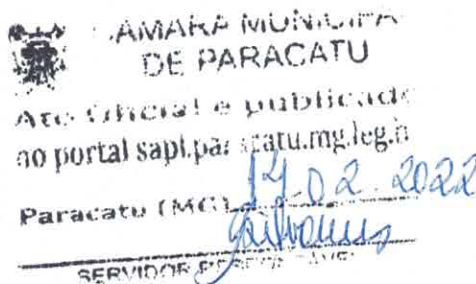 CÂMARA MUNICIPAL
DE PARACATU
Ato Oficial e publicado
no portal sapl.paracatu.mg.leg.b
Paracatu (MG) 14.02.2022
SERVIDOR RESPONSÁVEL